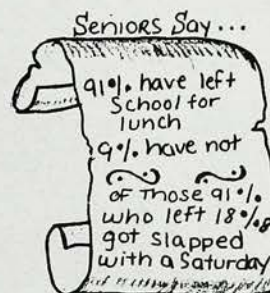 Seniors Say...
91% have left
School for
lunch
9% have not
of Those 91%
who left 18%
got slapped
with a Saturday